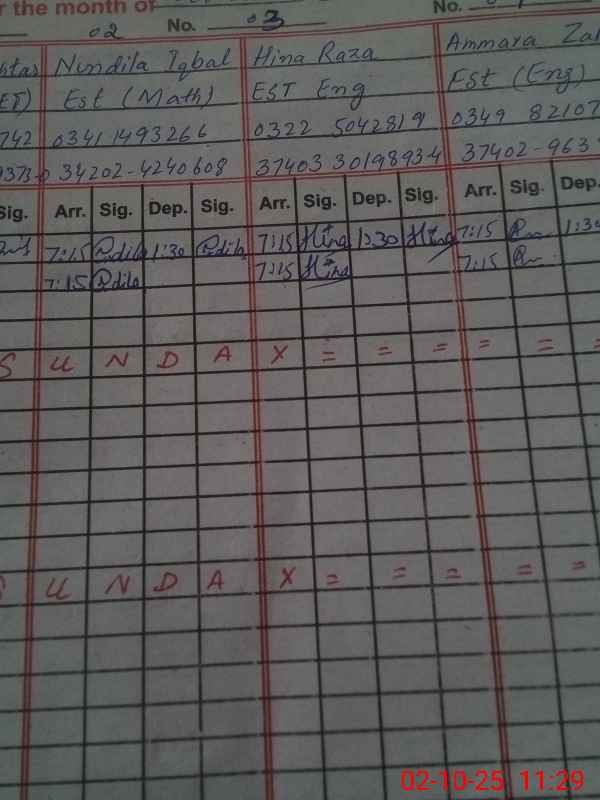 r the month of
No.
02 No. 03
Nundila Iqbal Hina Raza Ammara Za
Est (Math) EST Eng ESt (Eng)
742 0341 1493266 0322 5042819 0349 82107
34202-4240608 37403 3019893-4 37402-963
Sig. Arr. Sig. Dep. Sig. Arr. Sig. Dep. Sig. Arr. Sig. Dep.
7:15 1:30 7:15 Hina 1:30 Hina 7:15 1:30
7:15 7:15 Hina 7:15
S U N D A Y = = = = = =
S U N D A Y = = = = =
02-10-25 11:29